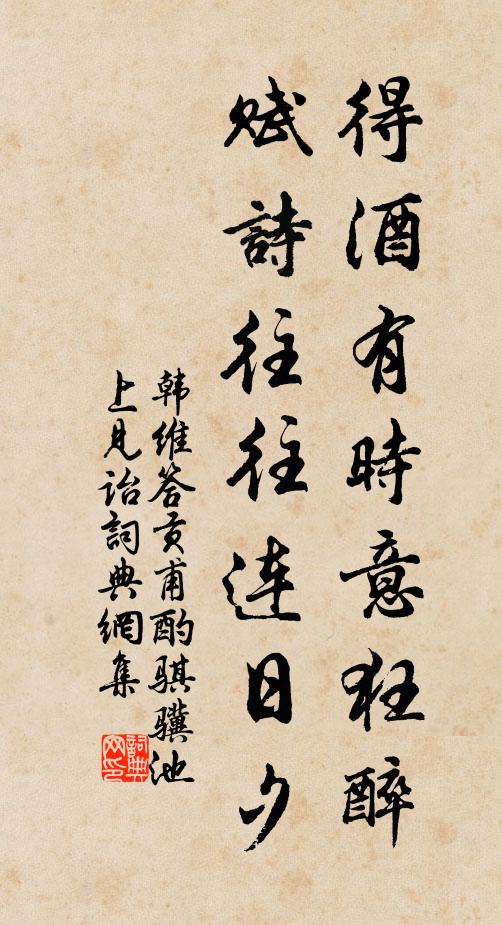 得酒有時意狂醉
賦詩往往連日夕
韩維答贡甫酌骐骥池
上見诒詞典網集
詞典
网印